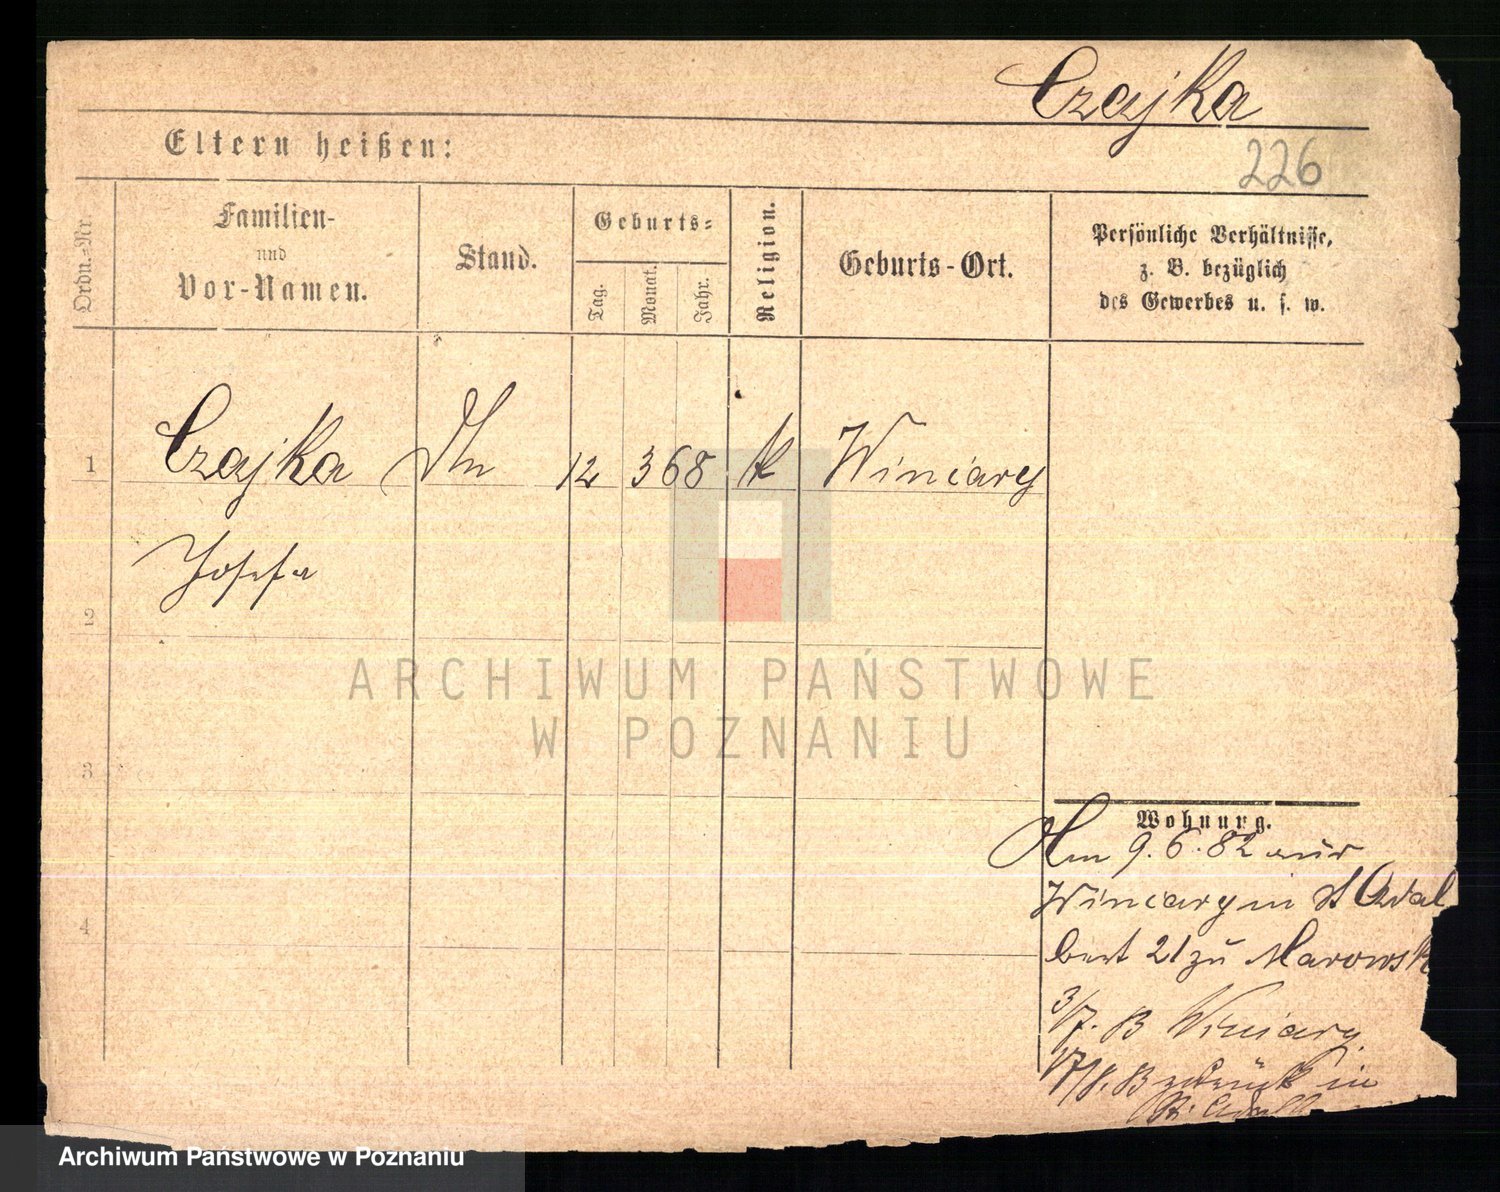 Czajka
226
Eltern heißen:
Ordn.-Nr.
Familien-
und
Vor-Namen.
Stand.
Geburts-
Tag.
Monat.
Jahr.
Religion.
Geburts-Ort.
Persönliche Verhältnisse,
z. B. bezüglich
des Gewerbes u. s. w.
1 Czajka 12 3 68 k Winiary
Josefa
2
3
4
ARCHIWUM PAŃSTWOWE
W POZNANIU
Wohnung.
Am 9.6.82 aus
Winiary in St Adal
bert 21 zu Marowsk
3/7. B Winiary
17/8. B zurück in
St. Adalb
Archiwum Państwowe w Poznaniu